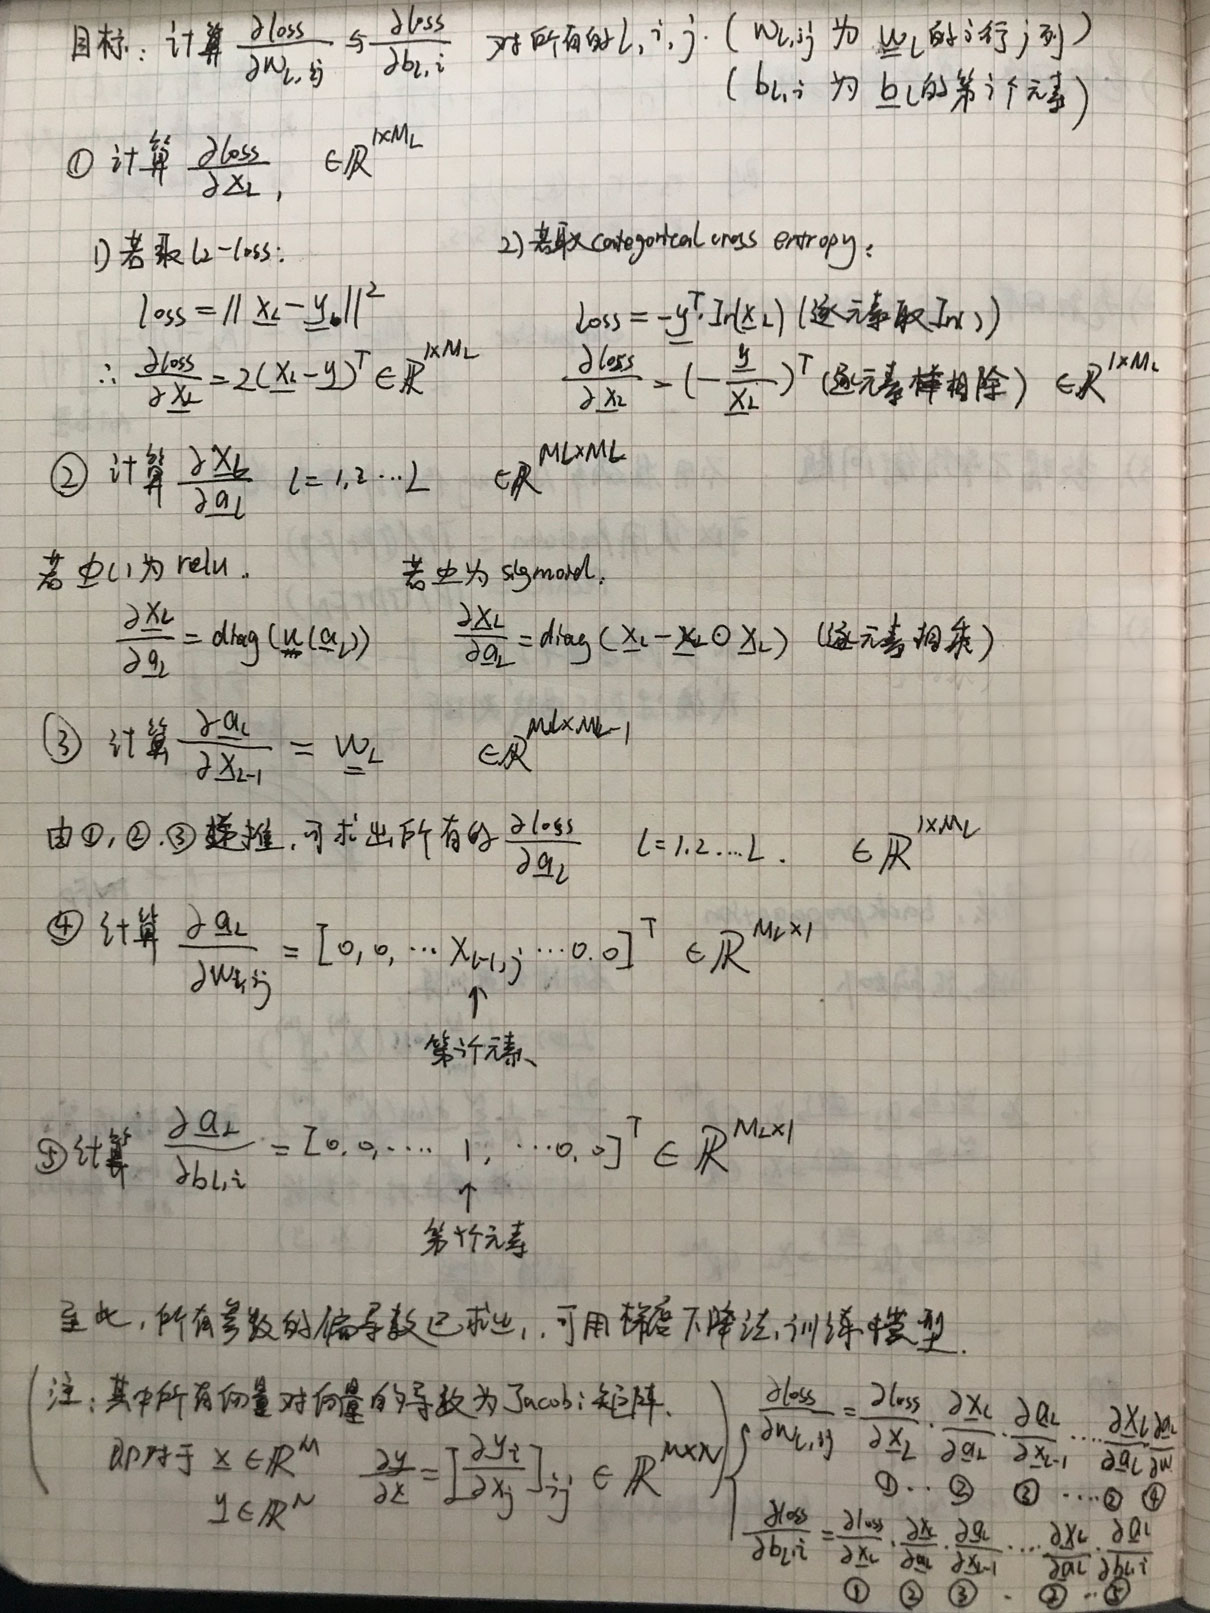 目标：计算 ∂loss/∂w_{l,ij} 与 ∂loss/∂b_{l,i} 对所有的l, i, j. (w_{l,ij} 为 w_l的i行j列)
(b_{l,i} 为 b_l的第i个元素)
① 计算 ∂loss/∂x_L, ∈ℝ^{1×M_L}
1) 若取l2-loss: 2) 若取categorical cross entropy:
loss = ||x_L - y||² loss = -y^T·ln(x_L) (逐元素取ln())
∴ ∂loss/∂x_L = 2(x_L - y)^T ∈ℝ^{1×M_L} ∂loss/∂x_L = (-y/x_L)^T (逐元素相除) ∈ℝ^{1×M_L}
② 计算 ∂x_l/∂a_l l=1,2…L ∈ℝ^{M_l×M_l}
若Φ()为relu. 若Φ为sigmoid.
∂x_l/∂a_l = diag(u(a_l)) ∂x_l/∂a_l = diag(x_l - x_l⊙x_l) (逐元素相乘)
③ 计算 ∂a_l/∂x_{l-1} = w_l ∈ℝ^{M_l×M_{l-1}}
由①,②,③递推,可求出所有的 ∂loss/∂a_l l=1,2…L. ∈ℝ^{1×M_l}
④ 计算 ∂a_l/∂w_{l,ij} = [0,0,…x_{l-1,j}…0.0]^T ∈ℝ^{M_l×1}
↑
第i个元素
⑤ 计算 ∂a_l/∂b_{l,i} = [0,0,…. 1, …0,0]^T ∈ℝ^{M_l×1}
↑
第i个元素
至此,所有参数的偏导数已求出,可用梯度下降法训练模型.
(注:其中所有向量对向量的导数为Jacobi矩阵.
即对于 x∈ℝ^M ∂y/∂x = [∂y_i/∂x_j]_{ij} ∈ℝ^{N×N})
y∈ℝ^N
∂loss/∂w_{l,ij} = ∂loss/∂x_L · ∂x_L/∂a_L · ∂a_L/∂x_{L-1} …. ∂x_l/∂a_l ∂a_l/∂w
① … ② ③ …. ② ④
∂loss/∂b_{l,i} = ∂loss/∂x_L · ∂x_L/∂a_L · ∂a_L/∂x_{L-1} …. ∂x_l/∂a_l · ∂a_l/∂b_{l,i}
① ② ③ . ② … ⑤